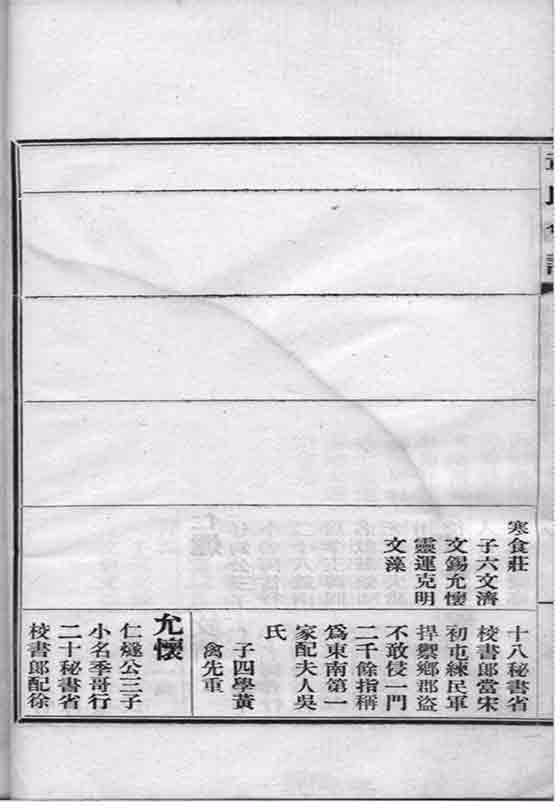 寒食莊
子六文濟
文錫允懷
靈運克明
文藻
十八秘書省
校書郎當宋
初屯練民軍
捍禦鄉郡盜
不敢侵一門
二千餘指稱
為東南第一
家配夫人吳
氏
子四學黃
禽先重
允懷
仁㷮公三子
小名季哥行
二十秘書省
校書郎配徐